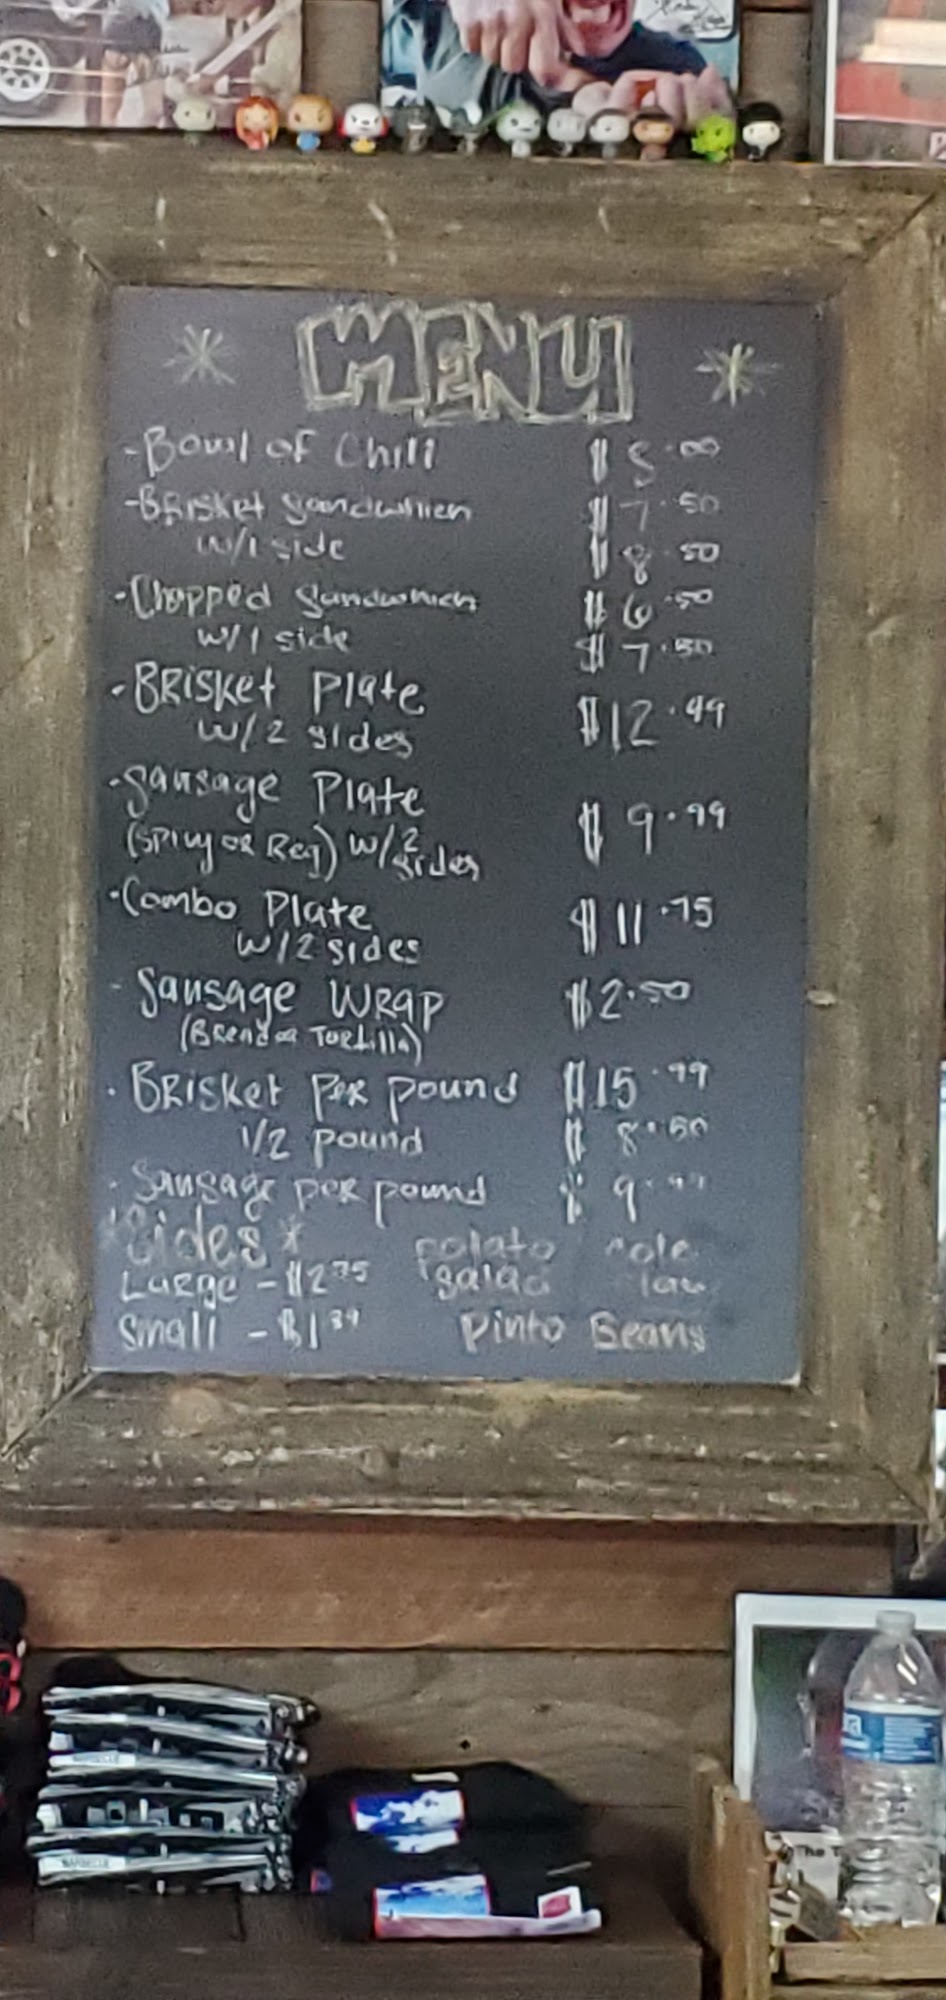 MENU
- Bowl of Chili $ 5.00
- Brisket Sandwhich $ 7.50
w/1 side $ 8.50
- Chopped Sandwhich $ 6.50
w/1 side $ 7.50
- BRisket Plate
w/2 sides $12.99
- Sausage Plate
(Spicy oR Reg) w/2 sides $ 9.99
- Combo Plate $ 11.75
w/2 sides
- Sausage WRap $2.50
(Bread oR ToRtilla)
- BRisket PeR pound $15.99
1/2 pound $ 8.50
- Sausage peR pound $ 9.99
*Sides* potato cole
LaRge - $2.75 salad law
Small - $1.39 Pinto Beans